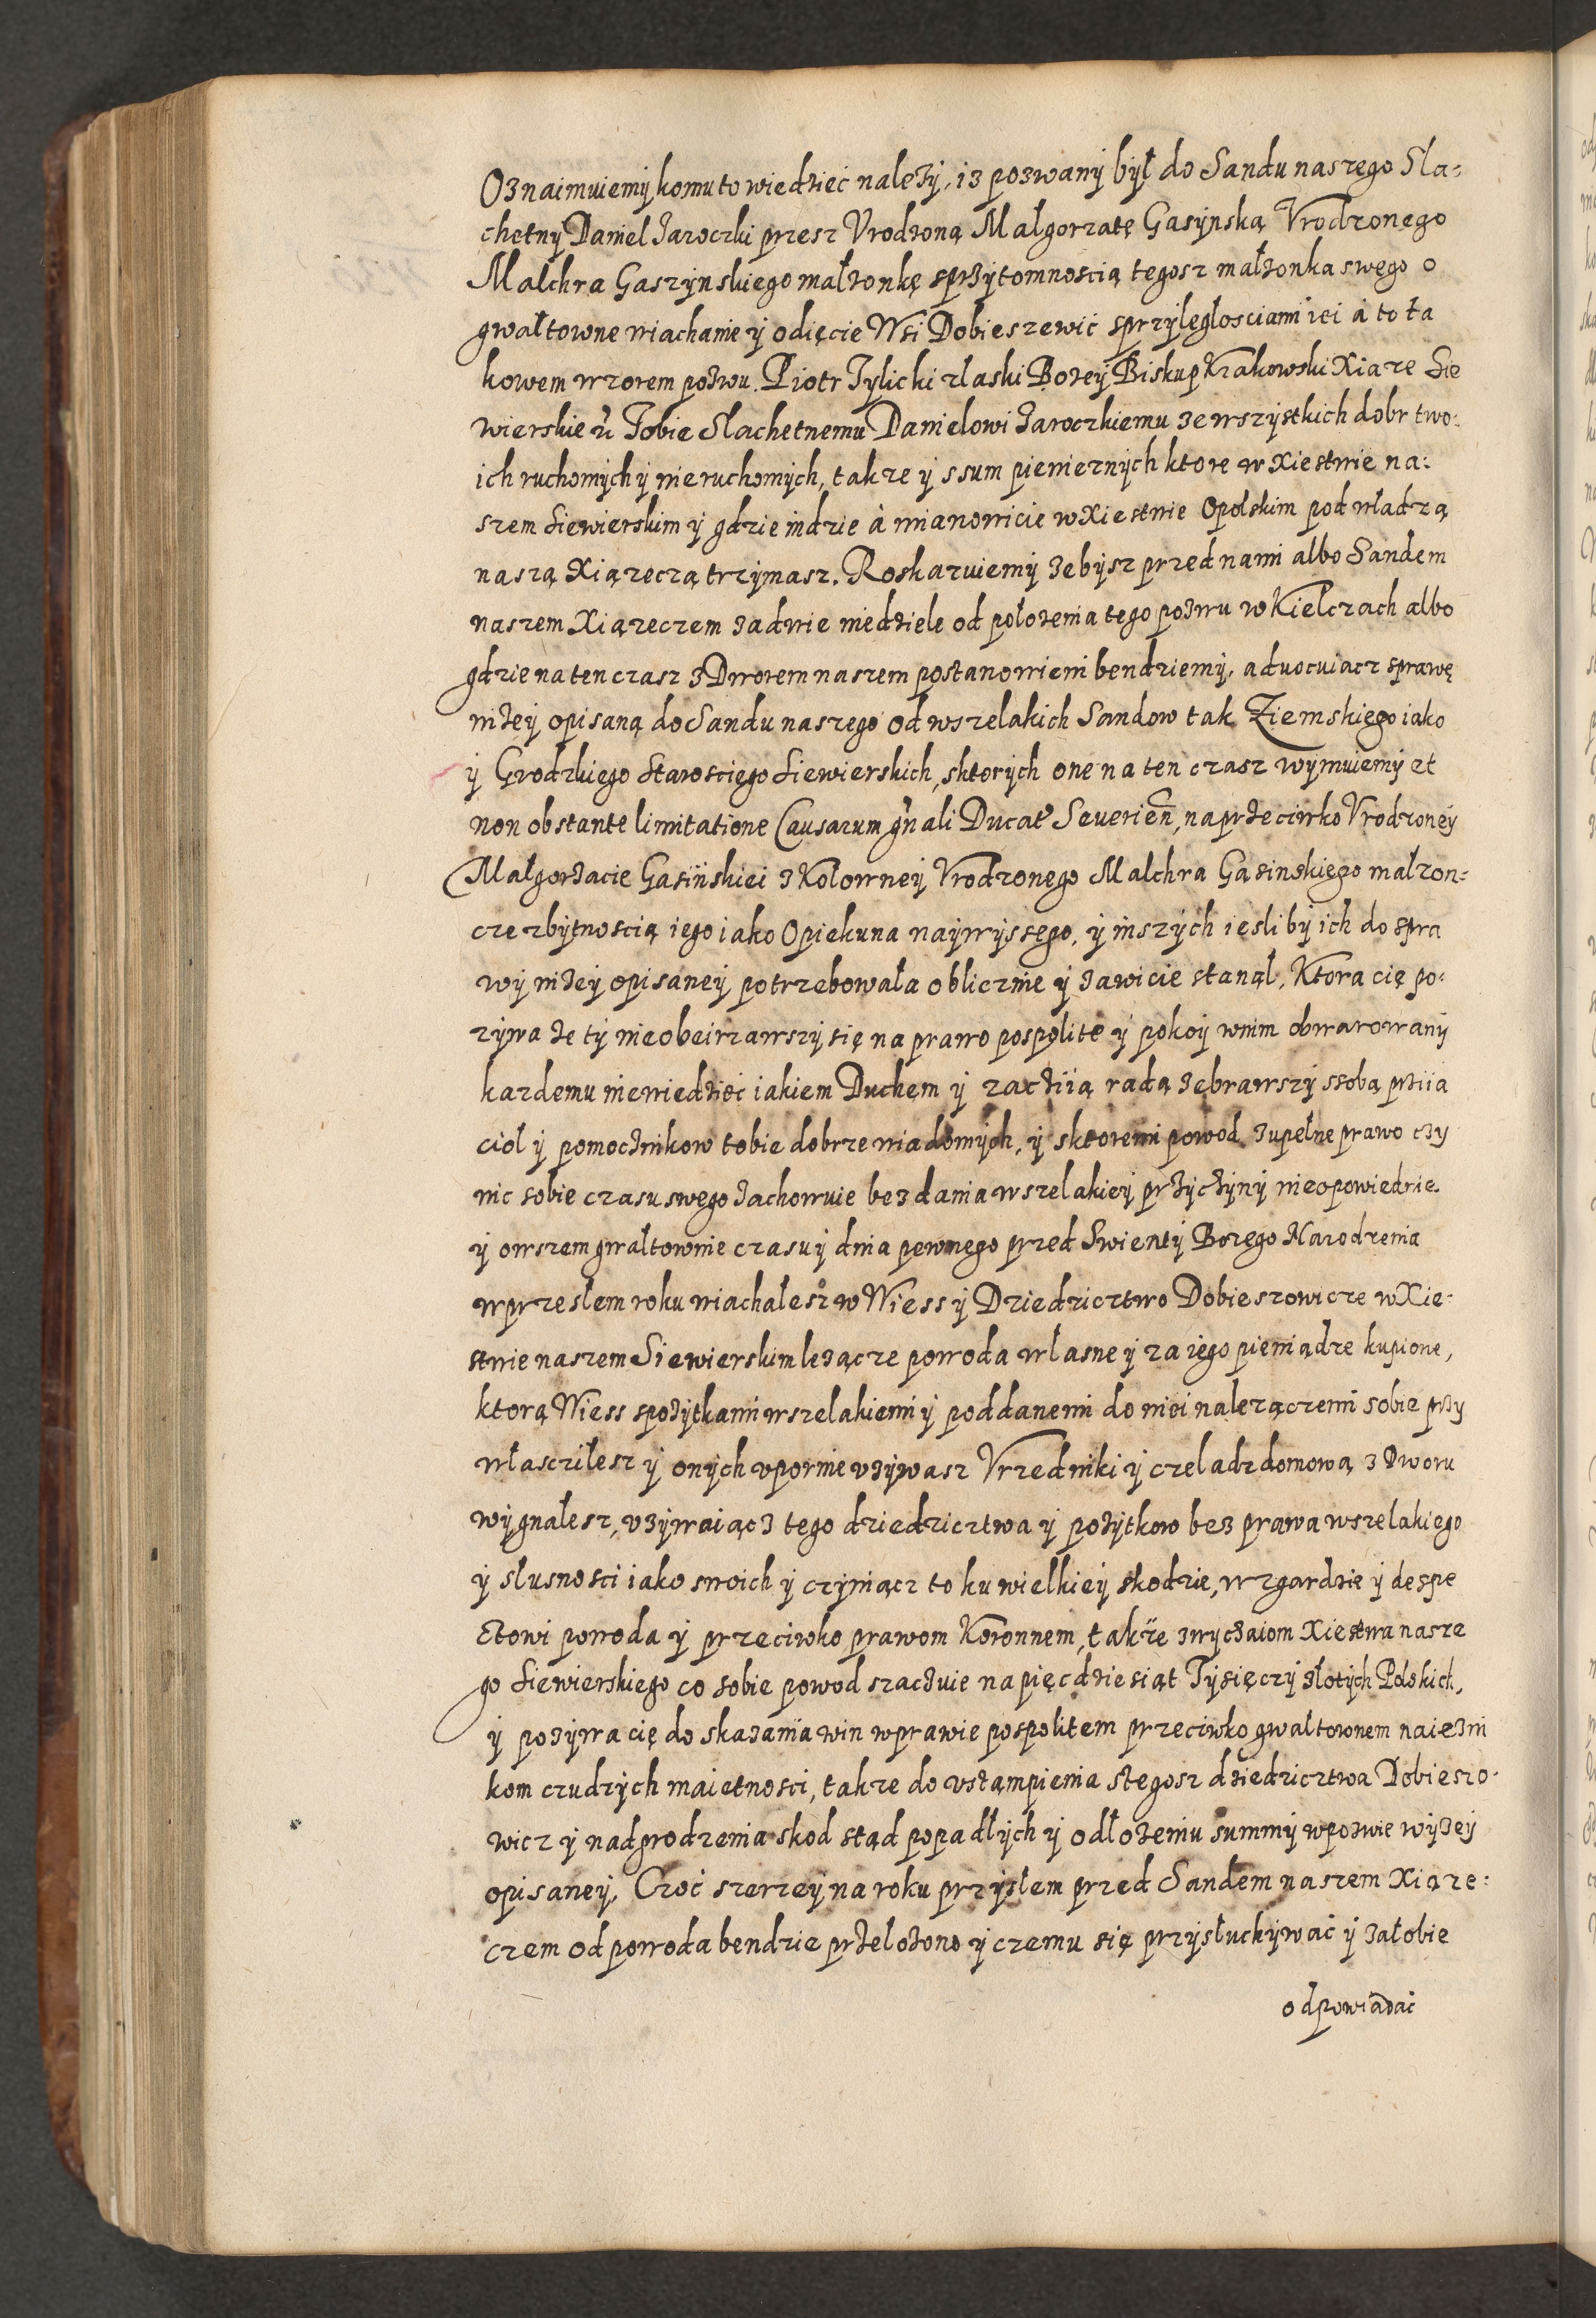 Oznaimuiemÿ komu to wiedzieć należÿ, iz pozwanÿ bÿł do Sandu naszego Sla=
chetnÿ Daniel Jaroczki przesz Vrodzoną Malgorzatę Gasÿnską Vrodzonego
Malchra Gaszÿnskiego małzonkę sprzÿtomnoscią tegosz małzonka swego o
gwałtowne wiachanie ÿ odięcie Wsi Dobieszewić sprzÿległosciami iei à to ta
kowem wzorem pozwu. Piotr Tÿlicki zlaski Bozeÿ Biskup Krakowski Xiaze Sie
wierskie Tobie Slachetnemu Danielowi Jaroczkiemu ze wszÿstkich dobr two=
ich ruchomÿch ÿ nieruchomÿch, takze ÿ ssum pienieznÿch ktore w Xiestwie na=
szem Siewierskim ÿ gdzie indzie à mianowicie w Xiestwie Opolskim pod władzą
naszą Xiązeczą trzÿmasz. Roskazuiemÿ zebÿsz przed nami albo Sandem
naszem Xiązeczem za dwie niedziele od połozenia tego pozwu w Kielczach albo
gdzie na ten czasz z Dworem naszem postanowieni bendziemÿ, aduocuiacz sprawę
nizeÿ opisaną do Sandu naszego od wszelakich Sandow tak Ziemskiego iako
ÿ Grodzkiego Starosciego Siewierskich, sktorÿch one na ten czasz wÿmuiemÿ et
non obstante limitatione Causarum gñali Ducat Seuerień, naprzeciwko Vrodzoneÿ
Małgorzacie Gasiïskiei z Kołowneÿ Vrodzonego Malchra Gasinskiego malzon=
cze zbÿtnoscią iego iako Opiekuna naÿwÿssego, ÿ inszÿch iesli bÿ ich do spra
wÿ nizeÿ opisaneÿ potrzebowała oblicznie ÿ zawicie stanął, Ktora cię po=
zÿwa ze tÿ nieobeirzawszÿ się na prawo pospolite ÿ pokoÿ wnim obwarowanÿ
kazdemu niewiedzieć iakiem Duchem ÿ radą zebrawszÿ ssobą przÿia
cioł ÿ pomocznikow tobie dobrze wiadomÿch, ÿ sktoremi powod zupełne prawo czÿ
nic sobie czasu swego zachowuie bez dania wszelakieÿ przÿczÿnÿ nieopowiednie
ÿ owszem gwałtownie czasu ÿ dnia pewnego przed Swientÿ Bozego Narodzenia
w przeslem roku wiachałesz w Wiess ÿ Dziedzicztwo Dobieszowicze w Xie=
stwie naszem Siewierskim lezącze powoda własne ÿ za iego pieniądze kupione,
ktorą Wiess spozÿtkami wszelakiemi ÿ poddanemi do niei nalezączemi sobie przÿ
własciłesz ÿ onÿch vpornie vzÿwasz Vrzedniki ÿ czeladz domową z Dworu
wÿgnałesz, vzÿwaiącz tego dziedzicztwa ÿ pozÿtkow bez prawa wszelakiego
ÿ slusnosci iako swoich ÿ czÿniącz to ku wielkieÿ skodzie, wzgardzie ÿ despe
ctowi powoda ÿ przeciwko prawom Koronnem, takze zwÿczaiom Xiestwa nasze
go Siewierskiego co sobie powod szaczuie na pięcdziesiąt Tÿsięczÿ złotÿch Polskich,
ÿ pozÿwa cię do skazania win w prawie pospolitem przeciwko gwaltownem naiezni
kom czudzÿch maietnosci, takze do vstąmpienia stegosz dziedzicztwa Dobieszo=
wicz ÿ nadgrodzenia skod stąd popadłÿch ÿ odłozeniu summÿ w pozwie wÿzeÿ
opisaneÿ, Czoć szerzeÿ na roku przÿslem przed Sandem naszem Xiąze=
czem od powoda bendzie przełozono ÿ czemu się przÿsłuchÿwać ÿ załobie
odpowiadać